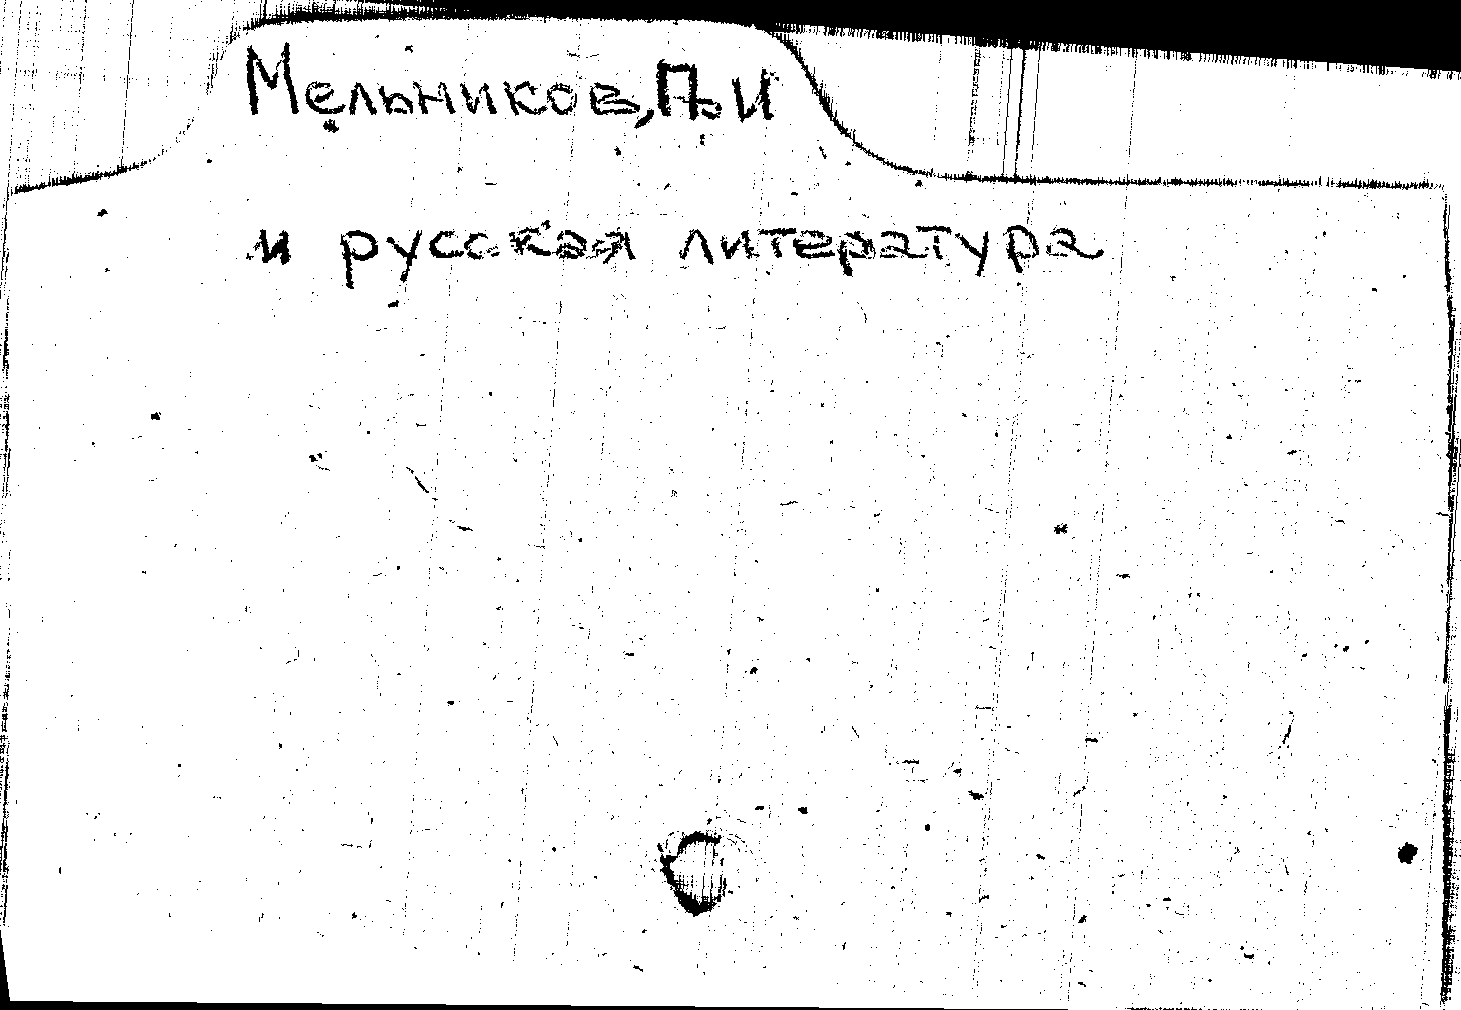 Мельников, П. И
и русская литература